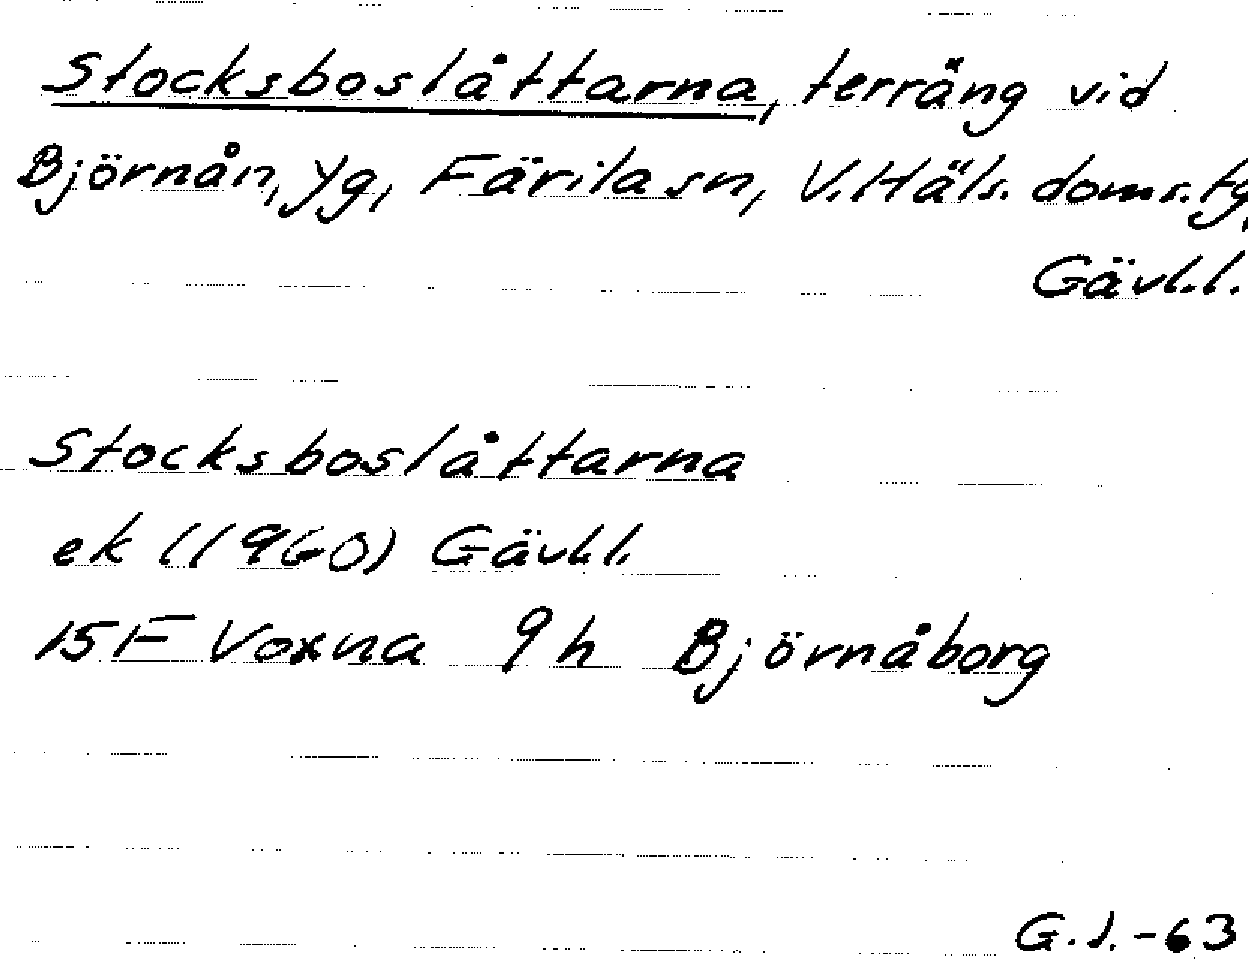 Stocksboslåttarna, terräng vid
Björnån, yg, Färila sn, V. Häls. doms.tg,
Gävl.l.
Stocksboslåttarna
ek (1960) Gävl.l.
15F Voxna 9h Björnåborg
G.J.-63